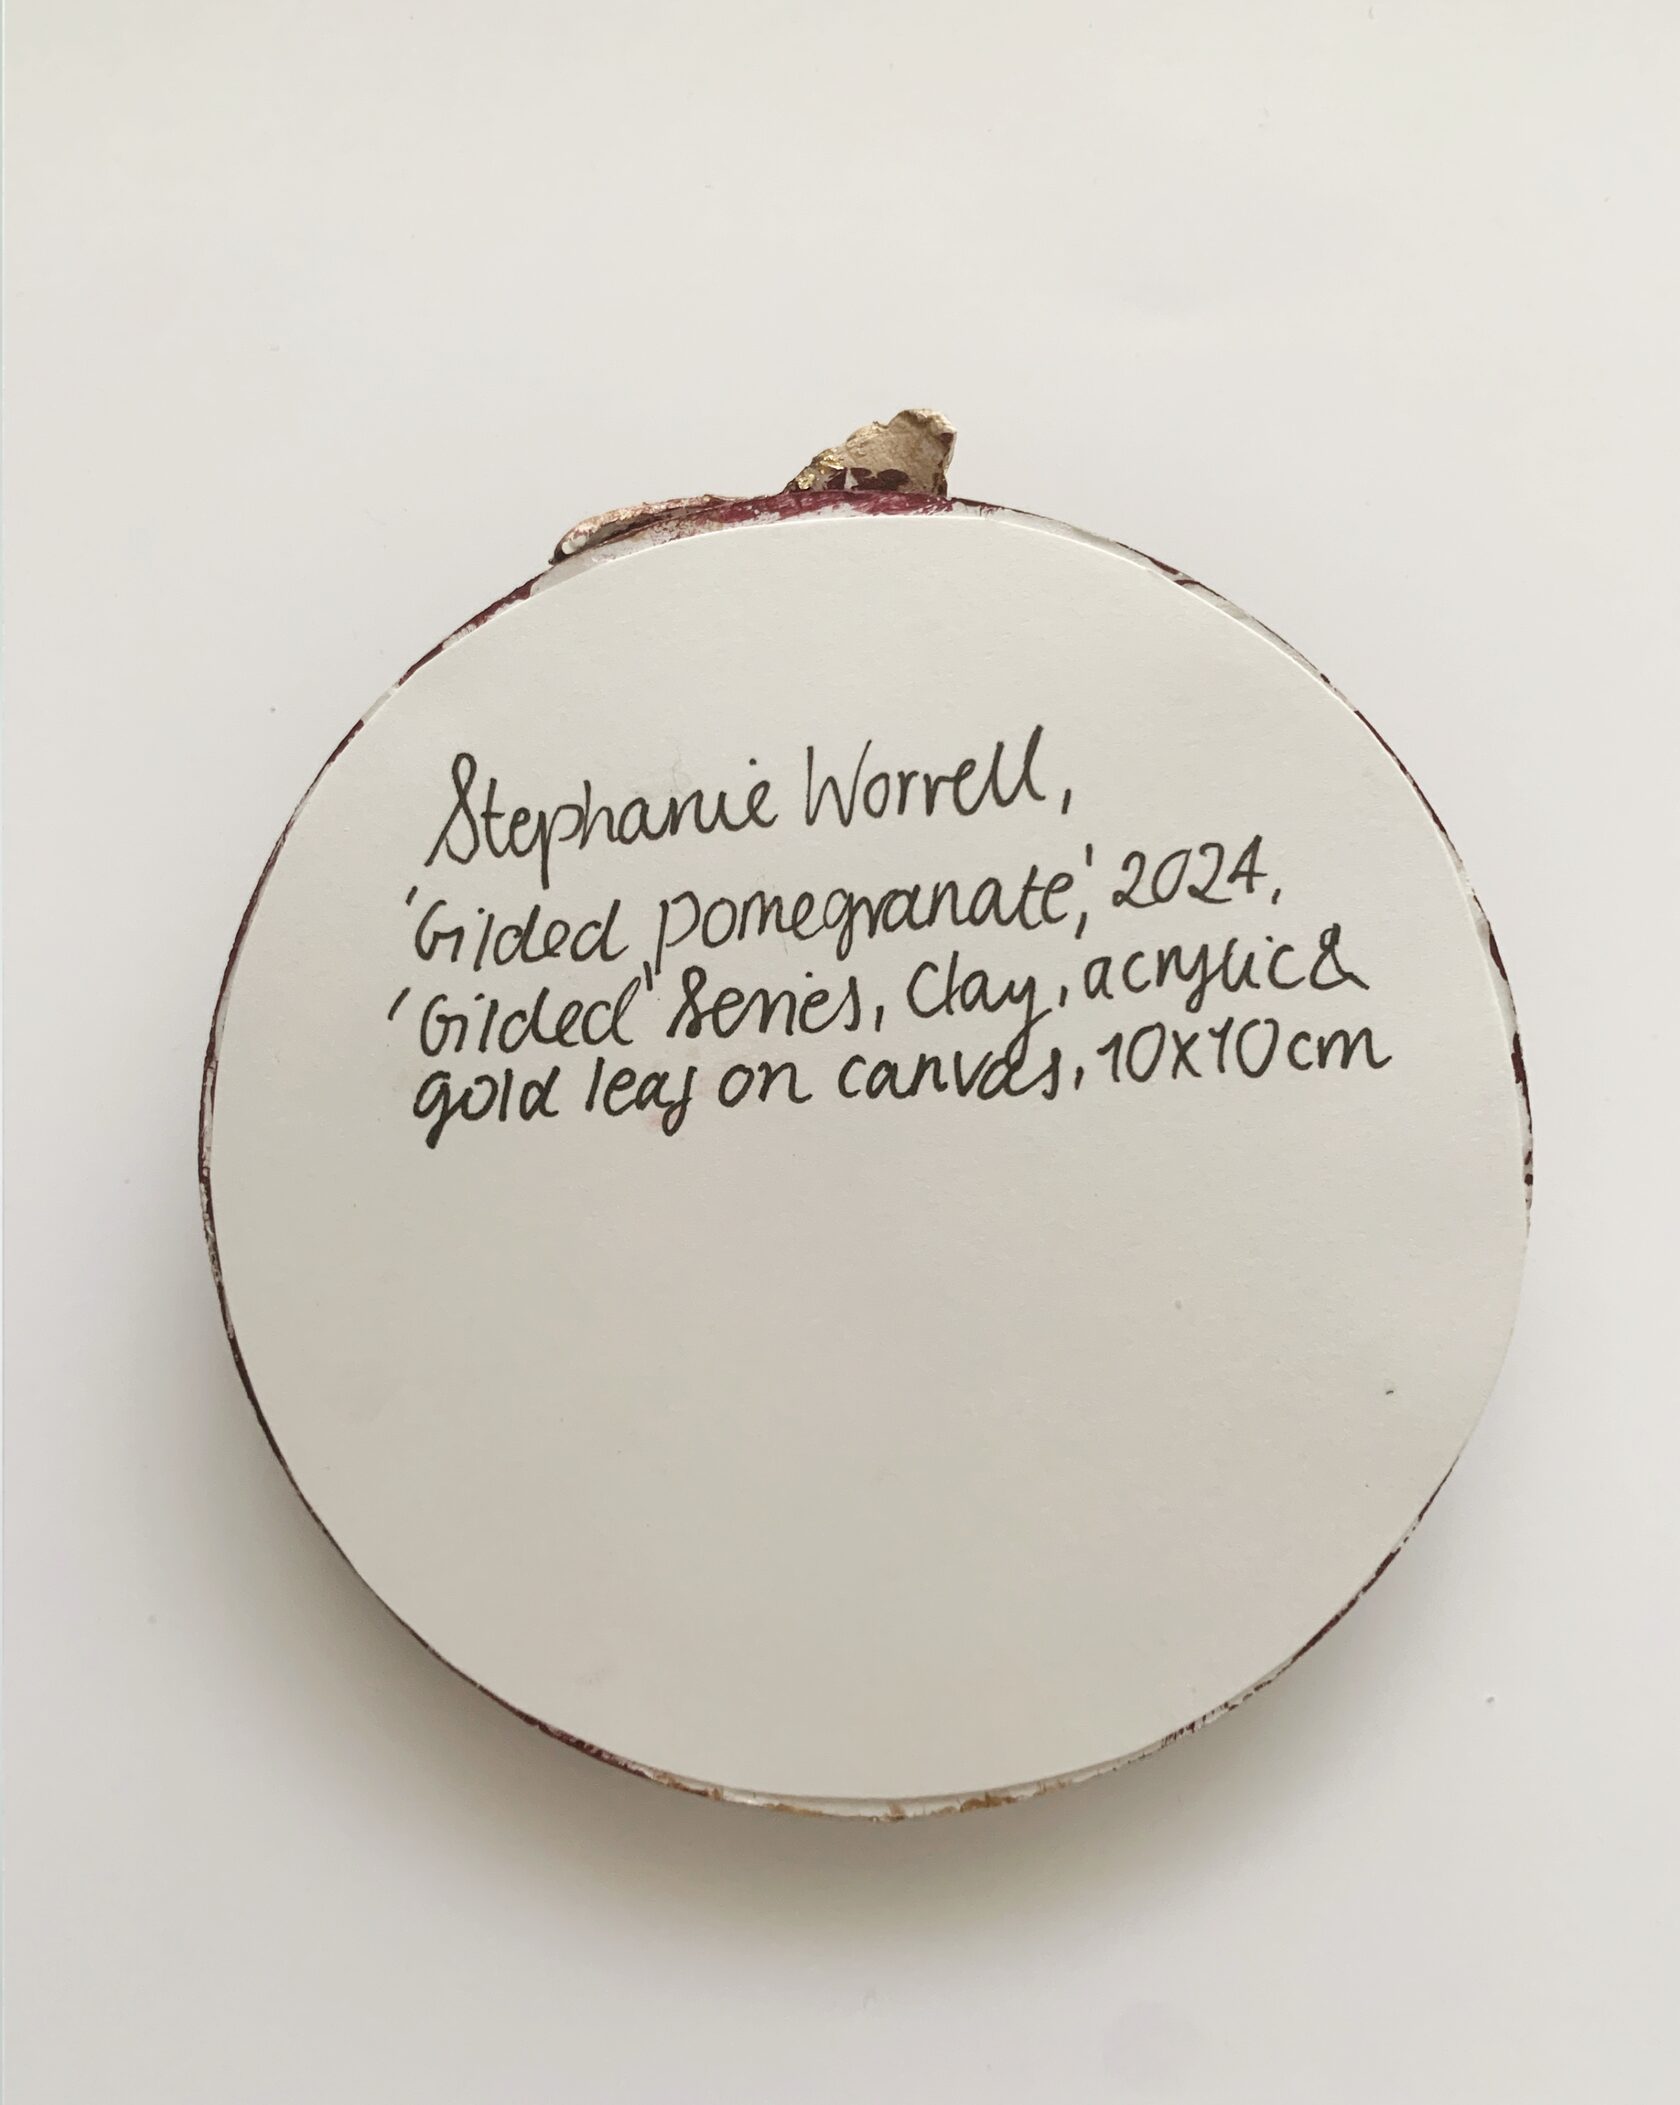 Stephanie Worrell,
'Gilded pomegranate,' 2024,
'Gilded' Series, Clay, acrylic &
gold leaf on canvas, 10x10cm